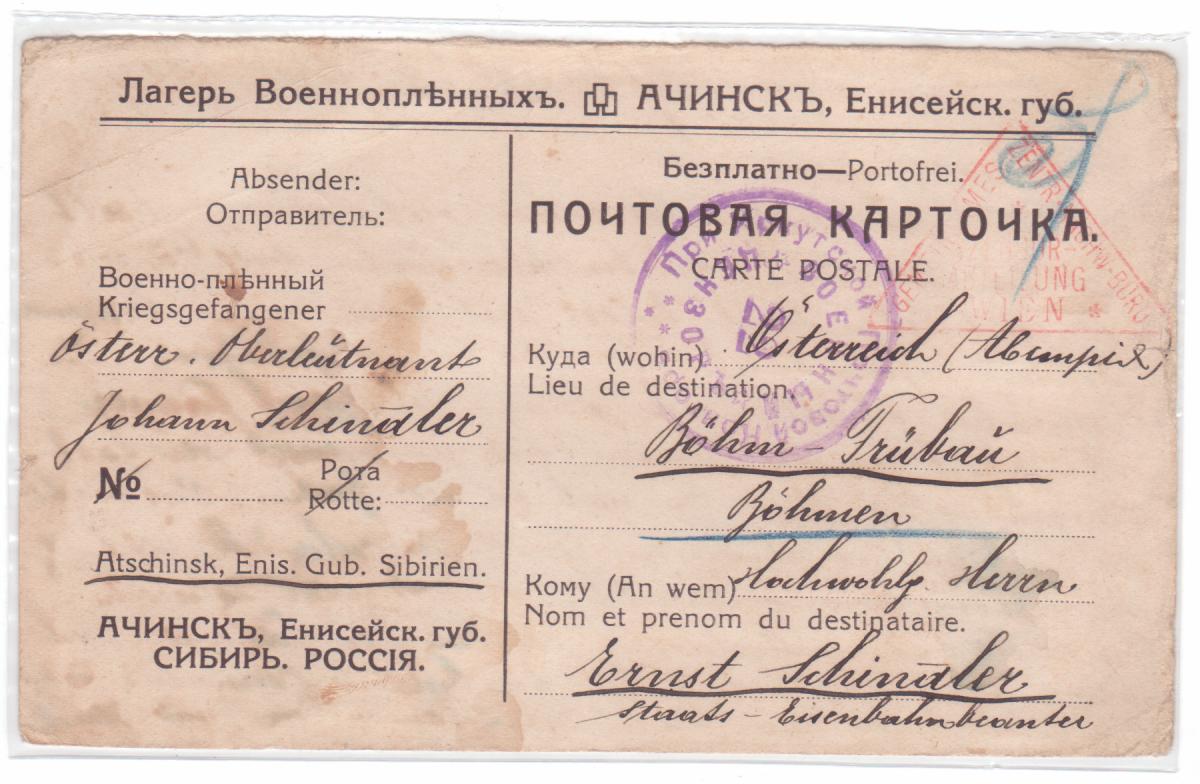 Лагерь Военноплѣнныхъ. АЧИНСКЪ, Енисейск. губ.
Absender:
Отправитель:
Военно-плѣнный
Kriegsgefangener
Österr. Oberleutnant
Johann Schindler
№
Рота
Rotte:
Atschinsk, Enis. Gub. Sibirien.
АЧИНСКЪ, Енисейск. губ.
СИБИРЬ. РОССІЯ.
Безплатно—Portofrei.
ПОЧТОВАЯ КАРТОЧКА.
CARTE POSTALE.
Куда (wohin) Österreich
Lieu de destination.
Böhm-Trübau
Böhmen
Кому (An wem) Hochwohlg. Herrn
Nom et prenom du destinataire.
Ernst Schindler
Staats-Eisenbahnbeamter
WIEN